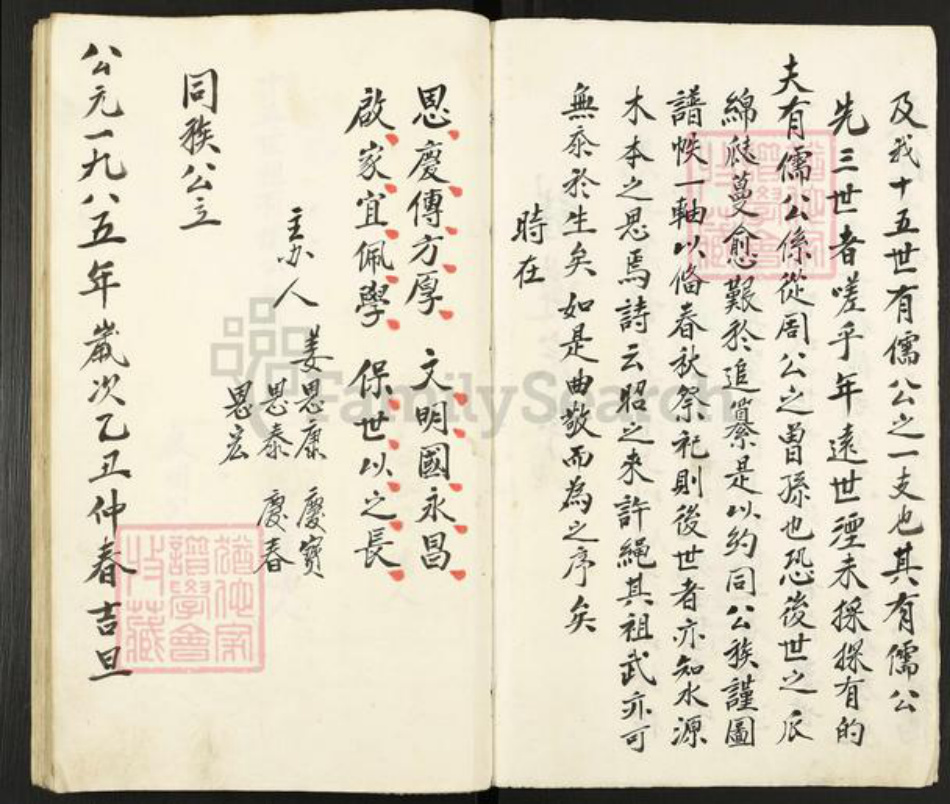 及我十五世有儒公之一支也其有儒公
先三世者嗟乎年遠世湮未採採有的
夫有儒公係從周公之曽孫也恐後世之瓜
綿瓞蔓愈艱於追纂是以約同公族謹圖
譜帙一軸以俻春秋祭祀則後世者亦知水源
木本之思焉詩云昭之来許繩其祖武亦可
無忝於生矣如是曲敬而為之序矣
時在
恩慶傳方厚 文明國永昌
啟家宜佩學 保世以之長
主办人 姜恩康 慶寶
恩泰 慶春
恩宏
同族公立
公元一九八五年嵗次乙丑仲春吉旦
猶他家譜學會收藏
猶他家譜學會收藏
FamilySearch